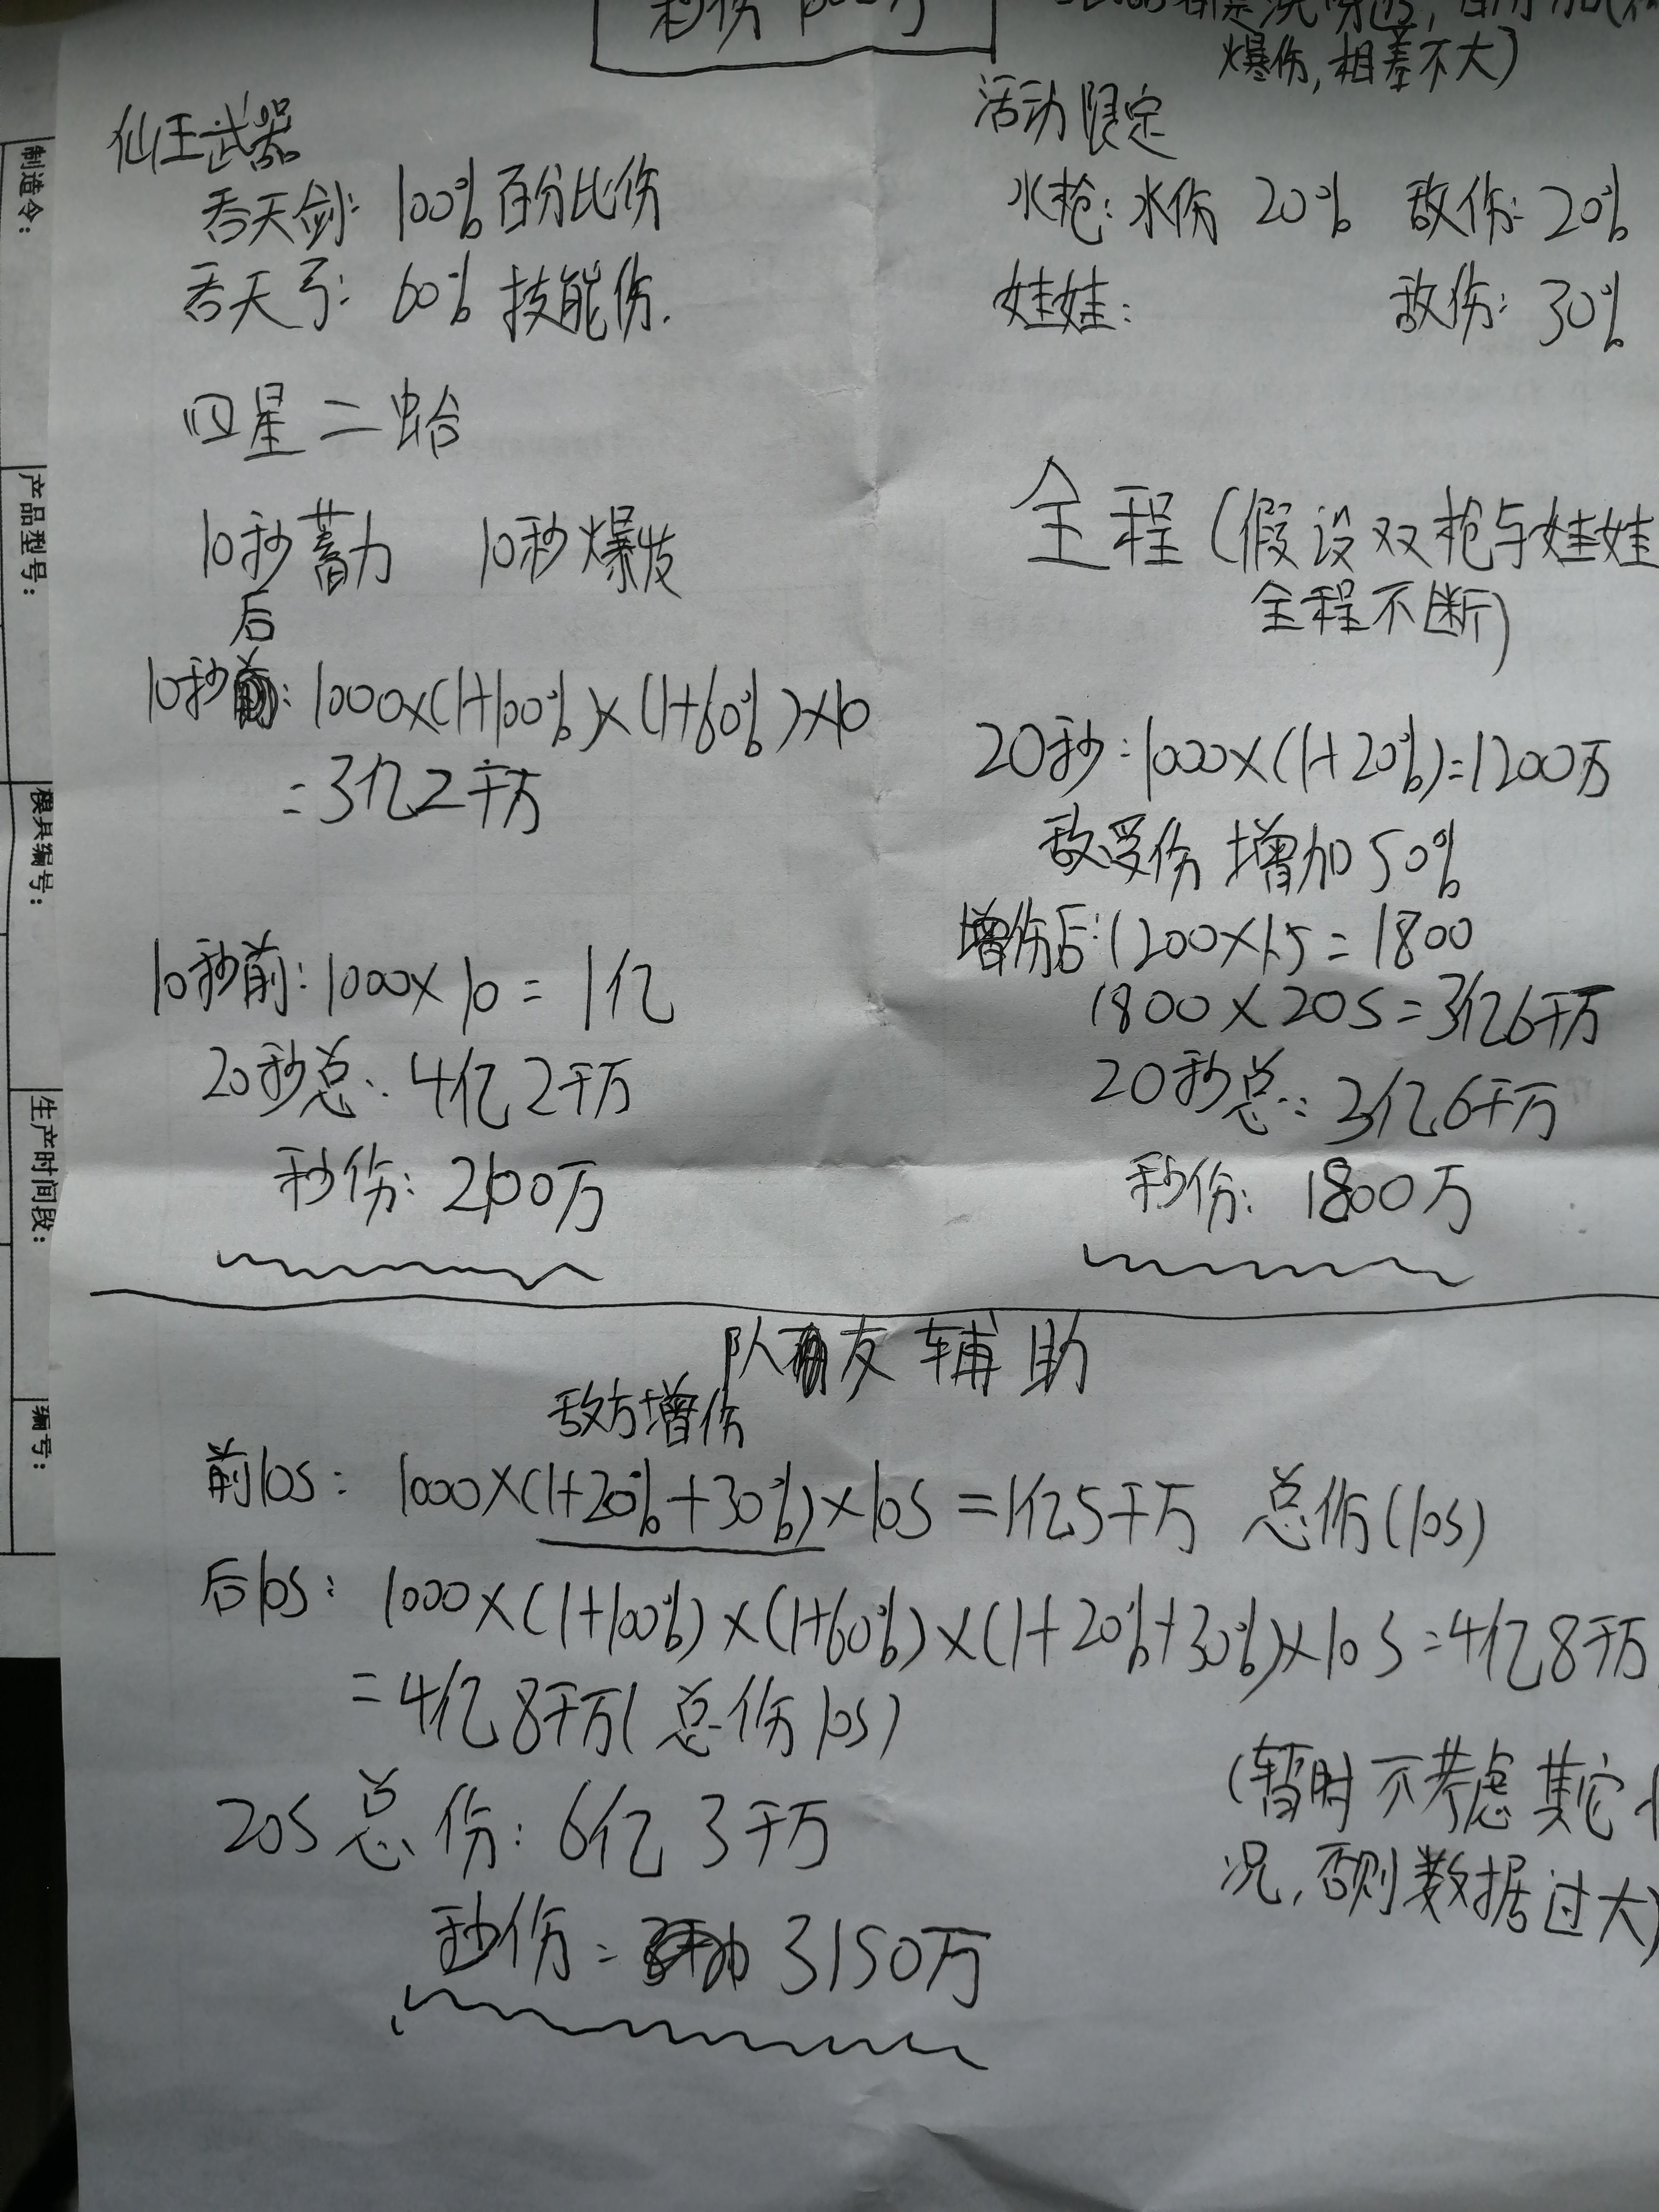 爆伤,相差不大)
仙王武器
吞天剑: 100% 百分比伤
吞天弓: 60% 技能伤.
四星二蛤
10秒蓄力 10秒爆发
后
10秒: 1000×(1+100%)×(1+60%)×10
=3亿2千万
10秒前: 1000×10=1亿
20秒总: 4亿2千万
秒伤: 2100万
活动限定
水枪: 水伤 20% 敌伤: 20%
娃娃: 敌伤: 30%
全程(假设双枪与娃娃
全程不断)
20秒: 1000×(1+20%)=1200万
敌受伤 增加50%
增伤后: 1200×1.5=1800
1800×20S=3亿6千万
20秒总: 3亿6千万
秒伤: 1800万
队友辅助
敌方增伤
前10S: 1000×(1+20%+30%)×10S=1亿5千万 总伤(10S)
后10S: 1000×(1+100%)×(1+60%)×(1+20%+30%)×10S=4亿8千万
=4亿8千万(总伤10S)
20S总伤: 6亿3千万
秒伤: 3150万
(暂时不考虑其它
况,否则数据过大)
制造令:
产品型号:
模具编号:
生产时间段:
编号: